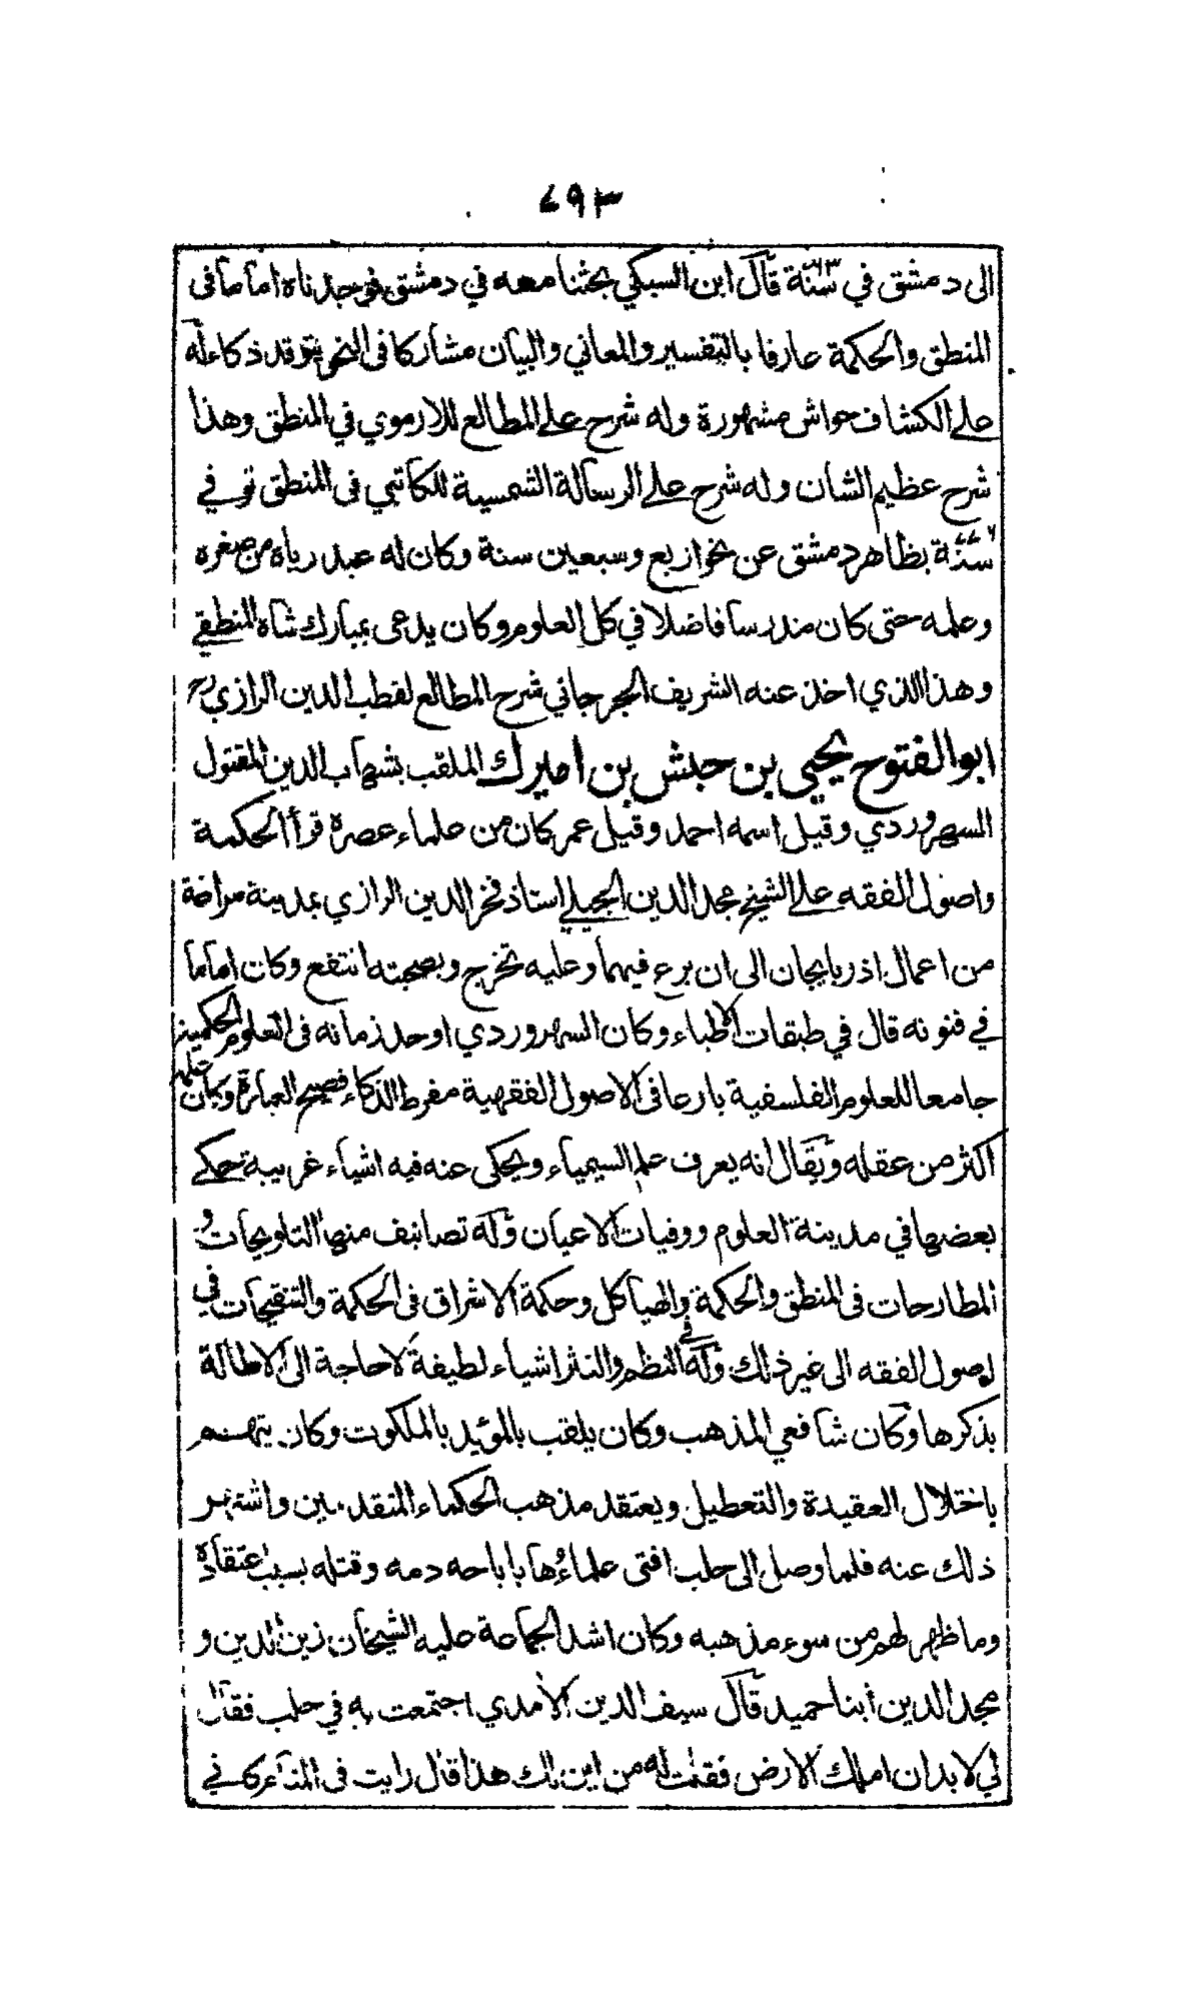 ٤٩٣
الى دمشق في سنة ٧٦٣ قال ابن السبكي بحثنا معه في دمشق فوجدناه اماما في
المنطق والحكمة عارفا بالتفسير والمعاني والبيان مشاركا في النحو يتوقد ذكاء له
على الكشاف حواش مشهورة وله شرح على المطالع للارموي في المنطق وهذا
شرح عظيم الشان وله شرح على الرسالة الشمسية للكاتبي في المنطق توفي في
سنة ٧٦٦ بظاهر دمشق عن نحو اربع وسبعين سنة وكان له عبد رباه من صغره
وعلمه حتى كان مدرسا فاضلا في كل العلوم وكان يدعى بمبارك شاه المنطقي
وهذا الذي اخذ عنه الشريف الجرجاني شرح المطالع لقطب الدين الرازي رح
ابو الفتوح يحيى بن حبش بن اميرك الملقب بشهاب الدين المقتول
السهروردي وقيل اسمه احمد وقيل عمر كان من علماء عصره قرأ الحكمة
واصول الفقه على الشيخ مجد الدين الجيلي استاذ فخر الدين الرازي بمدينة مراغة
من اعمال اذربايجان الى ان برع فيهما وعليه تخرج وبصحبته انتفع وكان اماما
في فنونه قال في طبقات الاطباء وكان السهروردي اوحد زمانه في العلوم الحكمية
جامعا للعلوم الفلسفية بارعا في الاصول الفقهية مفرط الذكاء فصيح العبارة وكان علمه
اكثر من عقله ويقال انه يعرف علم السيمياء ويحكى عنه فيه اشياء غريبة حكي
بعضها في مدينة العلوم ووفيات الاعيان وله تصانيف منها التلويحات و
المطارحات في المنطق والحكمة والهياكل وحكمة الاشراق في الحكمة والتنقيحات في
اصول الفقه الى غير ذلك وله في النظم والنثر اشياء لطيفة لا حاجة الى الاطالة
بذكرها وكان شافعي المذهب وكان يلقب بالمؤيد بالملكوت وكان يتهم
باختلال العقيدة والتعطيل ويعتقد مذهب الحكماء المتقدمين واشتهر
ذلك عنه فلما وصل الى حلب افتى علماؤها باباحه دمه وقتله بسبب اعتقاده
وما ظهر لهم من سوء مذهبه وكان اشد الجماعة عليه الشيخان زين الدين و
مجد الدين أبنا حميد قال سيف الدين الأمدي اجتمعت به في حلب فقال
لي لا بد ان املك الارض فقلت له من اين لك هذا قال رايت في المنام كاني